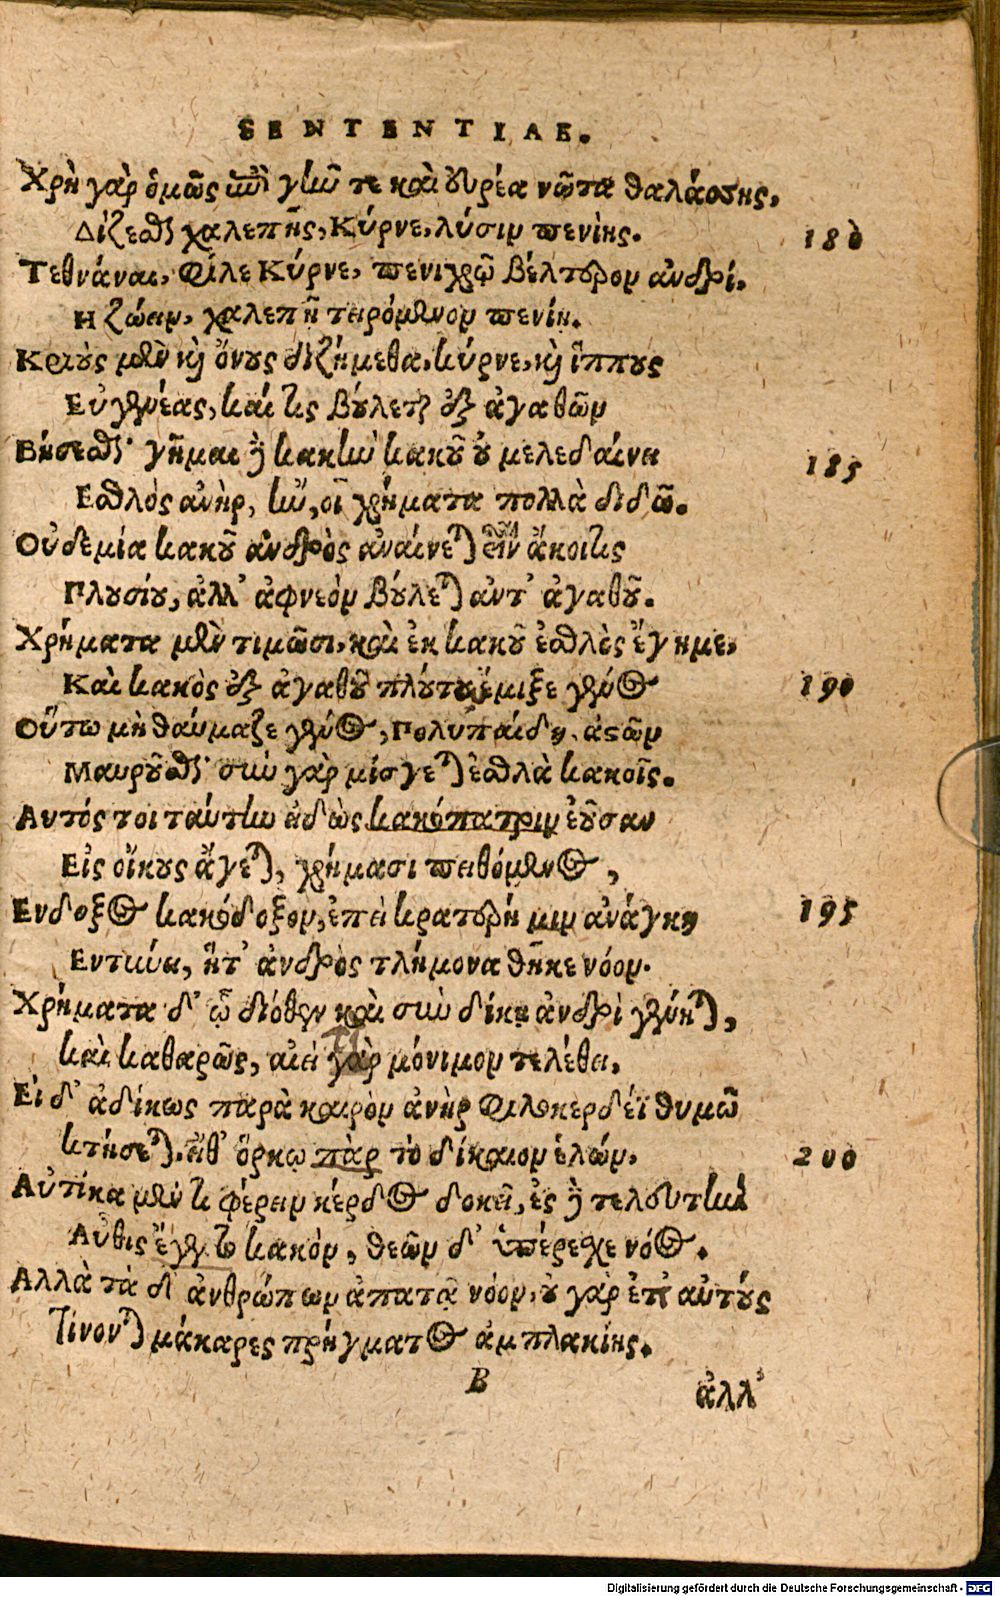 SENTENTIAE.
Χρὴ γὰρ ὁμῶς ἐπὶ γῆν τε καὶ εὐρέα νῶτα θαλάσσης,
Δίζεσθαι χαλεπῆς, Κύρνε, λύσιν πενίης. 180
Τεθνάναι, φίλε Κύρνε, πενιχρῷ βέλτερον ἀνδρί.
Η ζώειν, χαλεπῇ τειρόμενον πενίῃ.
Κριοὺς μὲν καὶ ὄνους διζήμεθα, κύρνε, καὶ ἵππους
Εὐγενέας, καί τις βούλεται ἐξ ἀγαθῶν
Βήσεσθαι· γῆμαι δὲ κακὴν κακοῦ οὐ μελεδαίνει 185
Εσθλὸς ἀνὴρ, ἢν, οἱ χρήματα πολλὰ διδῶ.
Οὐδεμία κακοῦ ἀνδρὸς ἀναίνεται εἶναι ἄκοιτις
Πλουσίου, ἀλλ' ἀφνεὸν βούλεται ἀντ' ἀγαθοῦ.
Χρήματα μὲν τιμῶσι, καὶ ἐκ κακοῦ ἐσθλὸς ἔγημε,
Καὶ κακὸς ἐξ ἀγαθοῦ πλοῦτος ἔμιξε γένος 190
Οὕτω μὴ θαύμαζε γένος, Πολυπαίδη, ἀστῶν
Μαυροῦσθαι· σὺν γὰρ μίσγεται ἐσθλὰ κακοῖς.
Αυτός τοι ταύτην εἰδὼς κακόπατριν ἐοῦσαν
Εἰς οἴκους ἄγεται, χρήμασι πειθόμενος,
Ενδοξος κακόδοξον, ἐπεὶ κρατερή μιν ἀνάγκη 195
Εντύει, ἥτ' ἀνδρὸς τλήμονα θῆκε νόον.
Χρήματα δ' ᾧ διόθεν καὶ σὺν δίκῃ ἀνδρὶ γένηται,
καὶ καθαρῶς, αἰεὶ γὰρ μόνιμον τελέθει.
Εἰ δ' ἀδίκως παρὰ καιρὸν ἀνὴρ φιλοκερδέϊ θυμῶ
κτήσεται, εἴθ' ὅρκῳ πὰρ τὸ δίκαιον ἑλών, 200
Αὐτίκα μέν τι φέρειν κέρδος δοκεῖ, ἐς δὲ τελευτὴν
Αὖθις ἔγεντο κακόν, θεῶν δ' ὑπέρεχε νόος.
Αλλὰ τὰ δ' ἀνθρώπων ἀπατᾷ νόον, οὐ γὰρ ἐπ' αὐτούς
Τίνονται μάκαρες πρήγματος ἀμπλακίης.
B
ἀλλ'
Digitalisierung gefördert durch die Deutsche Forschungsgemeinschaft - DFG